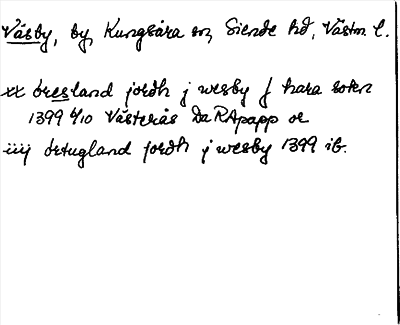 Väsby, by, Kungsåra sn, Siende hd, Västm. l.
xx öresland jordh j wesby j hara sokn
1399 4/10 Västerås Da RApapp or
iiij örtugland jordh j wesby 1399 ib.